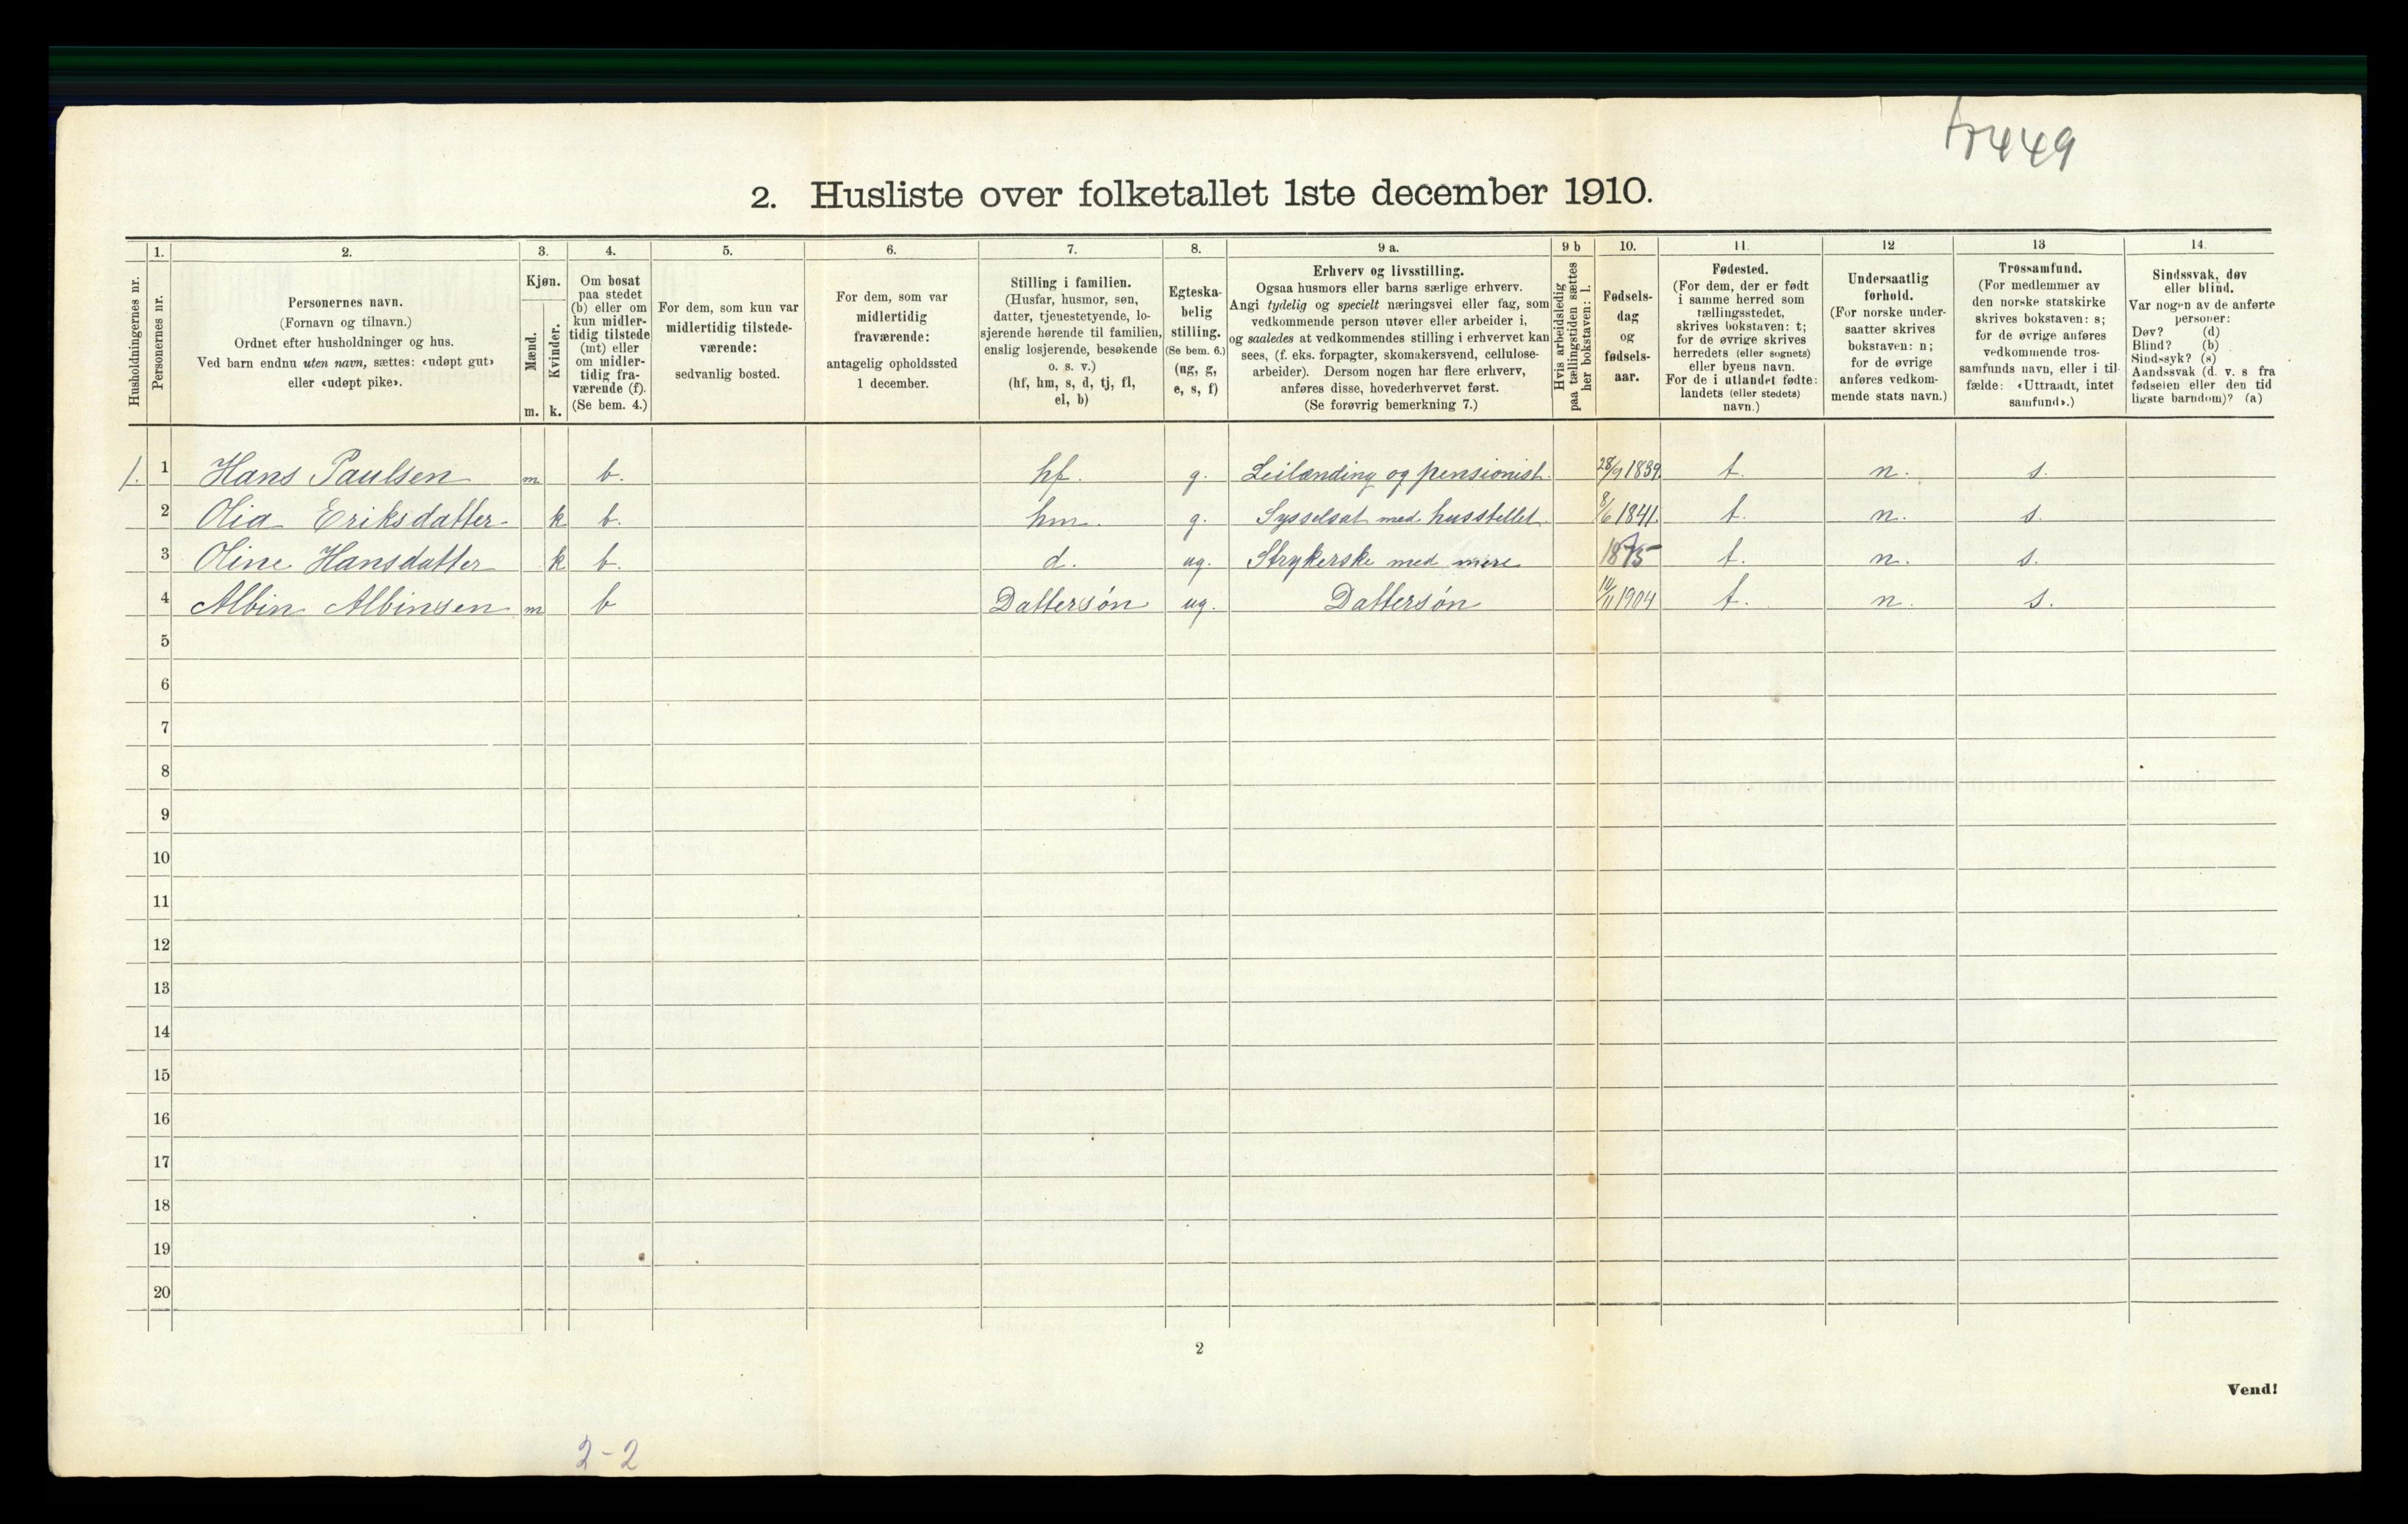 449
2. Husliste over folketallet 1ste december 1910.
Husholdningernes nr.
1.
Personernes nr.
2.
Personernes navn.
(Fornavn og tilnavn.)
Ordnet efter husholdninger og hus.
Ved barn endnu uten navn, sættes: «udøpt gut»
eller «udøpt pike».
3.
Kjøn.
Mænd.
m.
Kvinder.
k.
4.
Om bosat
paa stedet
(b) eller om
kun midler-
tidig tilstede
(mt) eller
om midler-
tidig fra-
værende (f).
(Se bem. 4.)
5.
For dem, som kun var
midlertidig tilstede-
værende:
sedvanlig bosted.
6.
For dem, som var
midlertidig
fraværende:
antagelig opholdssted
1 december.
7.
Stilling i familien.
(Husfar, husmor, søn,
datter, tjenestetyende, lo-
sjerende hørende til familien,
enslig losjerende, besøkende
o. s. v.)
(hf, hm, s, d, tj, fl,
el, b)
8.
Egteska-
belig
stilling.
(Se bem. 6.)
(ug, g,
e, s, f)
9 a.
Erhverv og livsstilling.
Ogsaa husmors eller barns særlige erhverv.
Angi tydelig og specielt næringsvei eller fag, som
vedkommende person utøver eller arbeider i,
og saaledes at vedkommendes stilling i erhvervet kan
sees, (f. eks. forpagter, skomakersvend, cellulose-
arbeider). Dersom nogen har flere erhverv,
anføres disse, hovederhvervet først.
(Se forøvrig bemerkning 7.)
9 b
Hvis arbeidsledig
paa tællingstiden sættes
her bokstaven: l.
10.
Fødsels-
dag
og
fødsels-
aar.
11.
Fødested.
(For dem, der er født
i samme herred som
tællingsstedet,
skrives bokstaven: t;
for de øvrige skrives
herredets (eller sognets)
eller byens navn.
For de i utlandet fødte:
landets (eller stedets)
navn.)
12
Undersaatlig
forhold.
(For norske under-
saatter skrives
bokstaven: n;
for de øvrige
anføres vedkom-
mende stats navn.)
13
Trossamfund.
(For medlemmer av
den norske statskirke
skrives bokstaven: s;
for de øvrige anføres
vedkommende tros-
samfunds navn, eller i til-
fælde: «Uttraadt, intet
samfund».)
14.
Sindssvak, døv
eller blind.
Var nogen av de anførte
personer:
Døv? (d)
Blind? (b)
Sindssyk? (s)
Aandssvak (d. v. s fra
fødselen eller den tid
ligste barndom)? (a)
1. 1 Hans Paulsen m b. hf. g. Leilænding og pensionist. 1839. t. n. s.
2 Olia Eriksdatter k b. hm. g. Sysselsat med husstellet. 8/6 1841. t. n. s.
3 Oline Hansdatter k b. d. ug. Strykerske med mere 1875 t. n. s.
4 Albin Albinsen m b Dattersøn ug. Dattersøn 11/11 1904 t. n. s.
5
6
7
8
9
10
11
12
13
14
15
16
17
18
19
20
2
Vend!
2-2